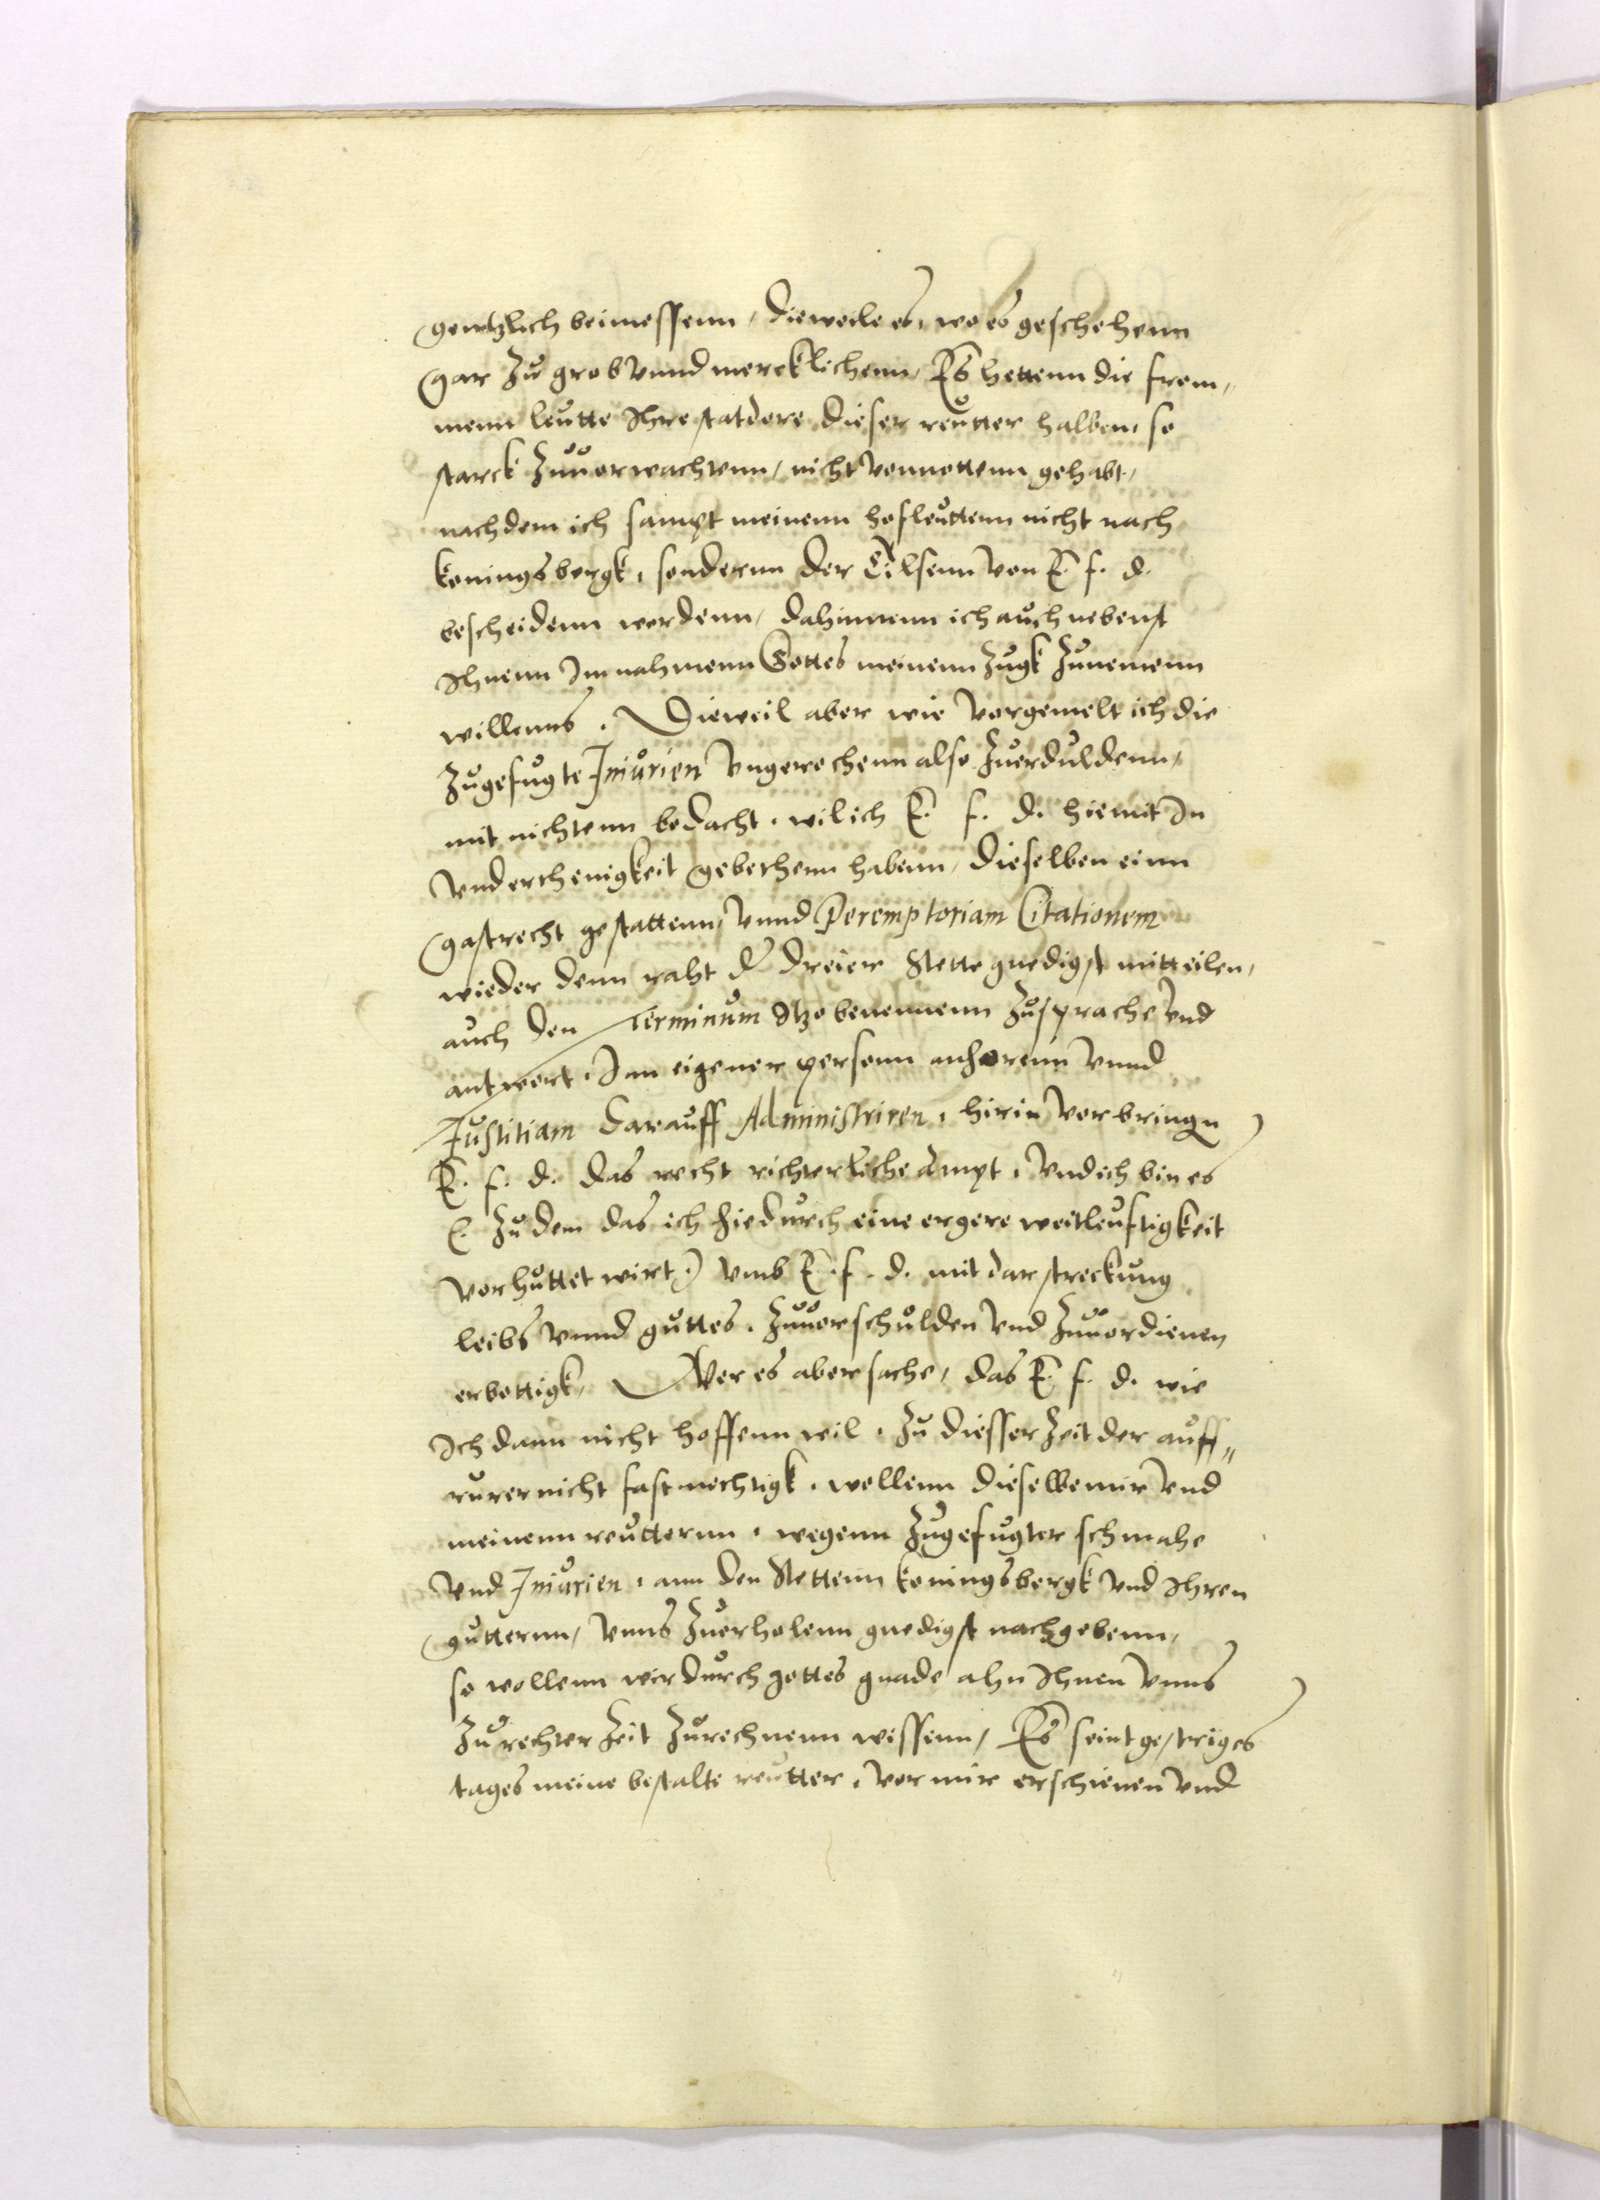 gentzlich beimessenn, dieweile es, wo es geschehenn
gar zu grob vnnd mercklichenn, Es hettenn die from¬
menn leutte Ihre statdore dieser reutter halben, so
starck zuuorwachenn, nicht vonnottenn gehabt,
nachdem ich sampt meinenn hofleuttenn nicht nach
koningsbergk, sondernn der Tilsenn von E. f. d.
bescheidenn wordenn, dahinnenn ich auch nebenst
Ihnenn Im nahmenn Gottes meinenn zugk zunemenn
willenns. Dieweil aber wie vorgemelt ich die
zugefugte Iniurien vngerochenn also zuerduldenn,
mit nichtenn bedacht, wil ich E. f. d. hiemit In
vnderthenigkeit gebethenn habenn, dieselben einn
gastrecht gestattenn, vnnd Peremptoriam Citationem
wieder denn raht der dreier Stette gnedigst mitteilen,
auch den Terminum Itzo benennenn zusprache vnd
antwort, Inn eigener personn anhorenn vnnd
Iustitiam darauff Administriren, hirin vorbringen
E. f. d. das recht richterliche ampt, vnd ich bin es
(: zu dem das ich hiedurch eine ergere weitleuftigkeit
vorhuttet wirt :) vmb E. f. d. mit darstreckung
leibs vnnd guttes, zuuorschulden vnd zuuordienen
erbottigk, Wer es aber sache, das E. f. d. wie
Ich dann nicht hoffenn wil, zu diesser zeit der auff¬
rurer nicht fast mechtigk, wollenn dieselbe mir vnd
meinenn reutternn, wegenn zugefugter schmahe
vnd Iniurien, ann den Stettenn koningsbergk vnd Ihren
gutternn, vnns zuerholenn gnedigst nachgebenn,
so wollenn wir durch gottes gnade ahn Ihnen vnns
zu rechter zeit zurechnenn wissenn, Es seint gestriges
tages meine bestalte reutter, vor mir erschienen vnd